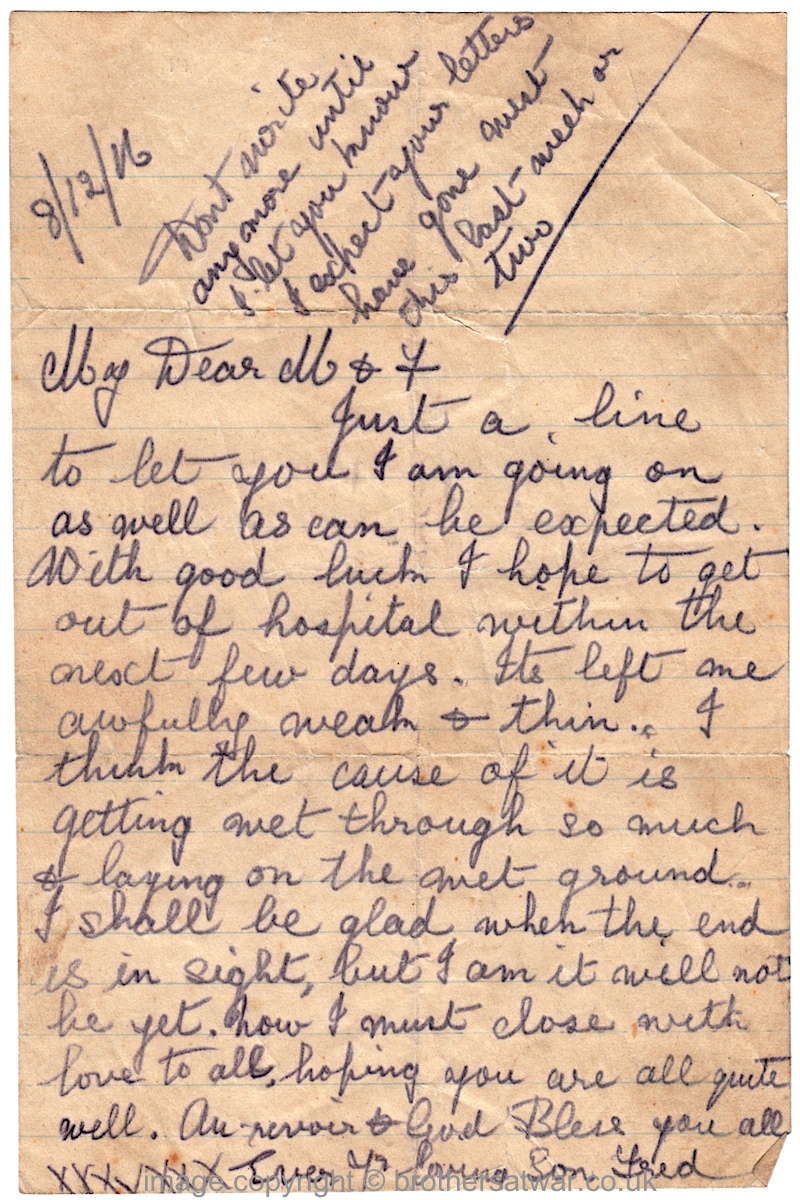 8/12/16
Dont write
anymore until
I let you know
I expect your letters
have gone west
this last week or
two
My Dear M & F
Just a line
to let you I am going on
as well as can be expected.
With good luck I hope to get
out of hospital within the
next few days. Its left me
awfully weak & thin. I
think the cause of it is
getting wet through so much
& laying on the wet ground.
I shall be glad when the end
is in sight, but I am it will not
be yet. Now I must close with
love to all, hoping you are all quite
well. Au-revoir & God Bless you all
XXXXXXX Ever Yr loving Son Fred
image copyright © brothersatwar.co.uk